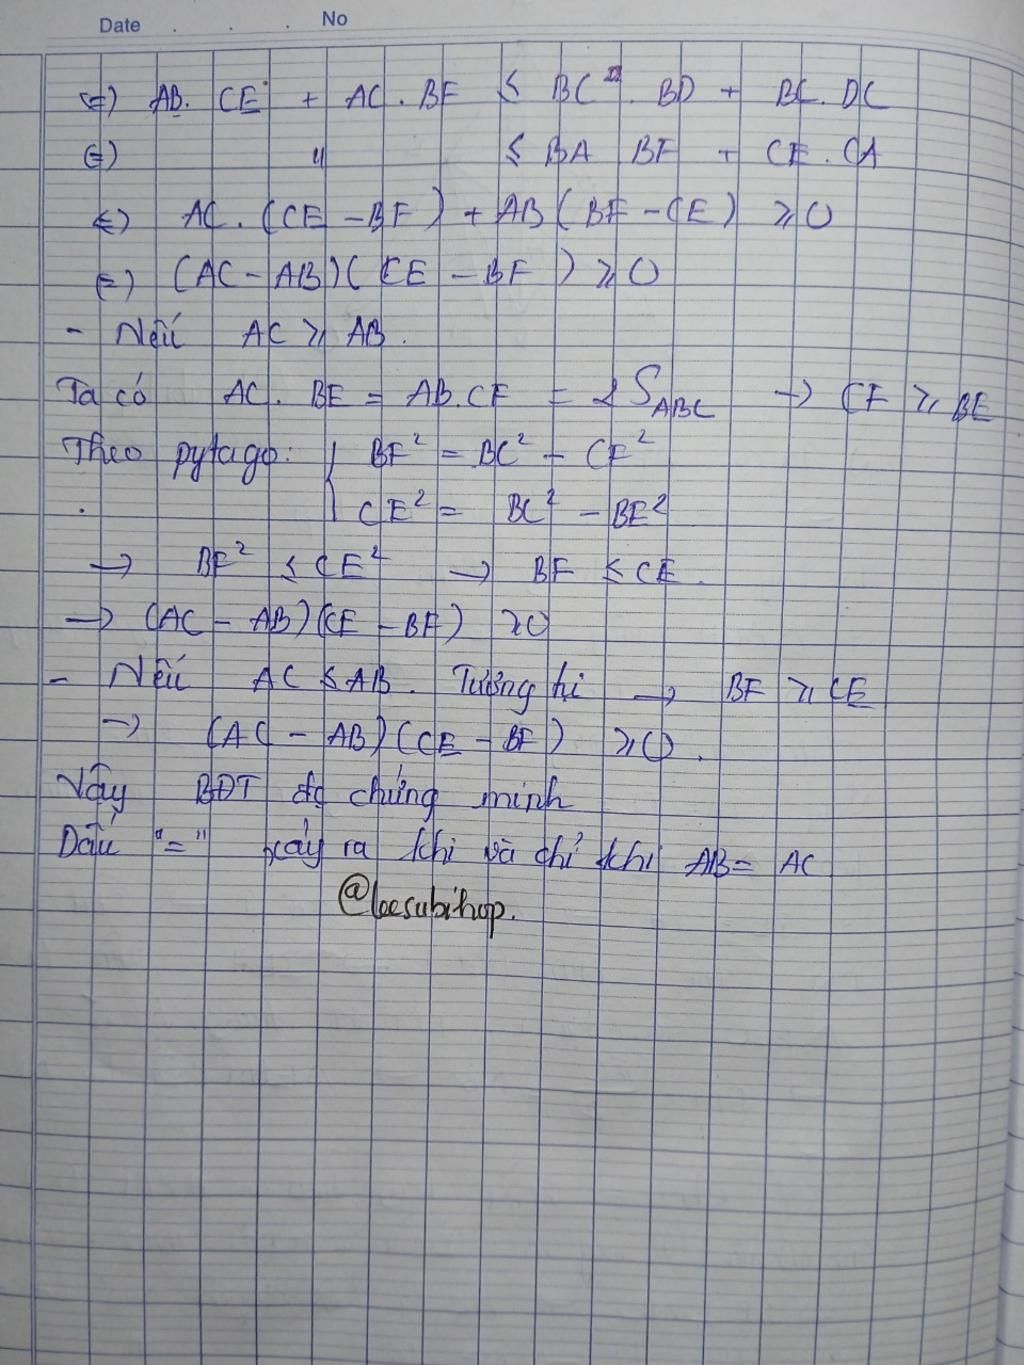 Date . . . No
⇔) AB. CE + AC. BF ≤ BC . BD + BC. DC
⇔) ч ≤ BA BF + CE. CA
⇔) AC. (CE - BF) + AB (BF - CE) ≥ 0
⇔) (AC - AB)(CE - BF) ≥ 0
- Nếu AC ≥ AB.
Ta có AC. BE = AB.CF = 2S_ABC → CF ≥ BE
Theo pytago: { BF² = BC² - CF²
CE² = BC² - BE²
→ BF² ≤ CE² → BF ≤ CE.
→ (AC - AB)(CE - BF) ≥ 0
- Nếu AC ≤ AB. Tương tự → BF ≥ CE
→ (AC - AB)(CE - BF) ≥ 0.
Vậy BĐT đc chứng minh
Dấu "=" xảy ra khi và chỉ khi AB = AC
@leesubihop.